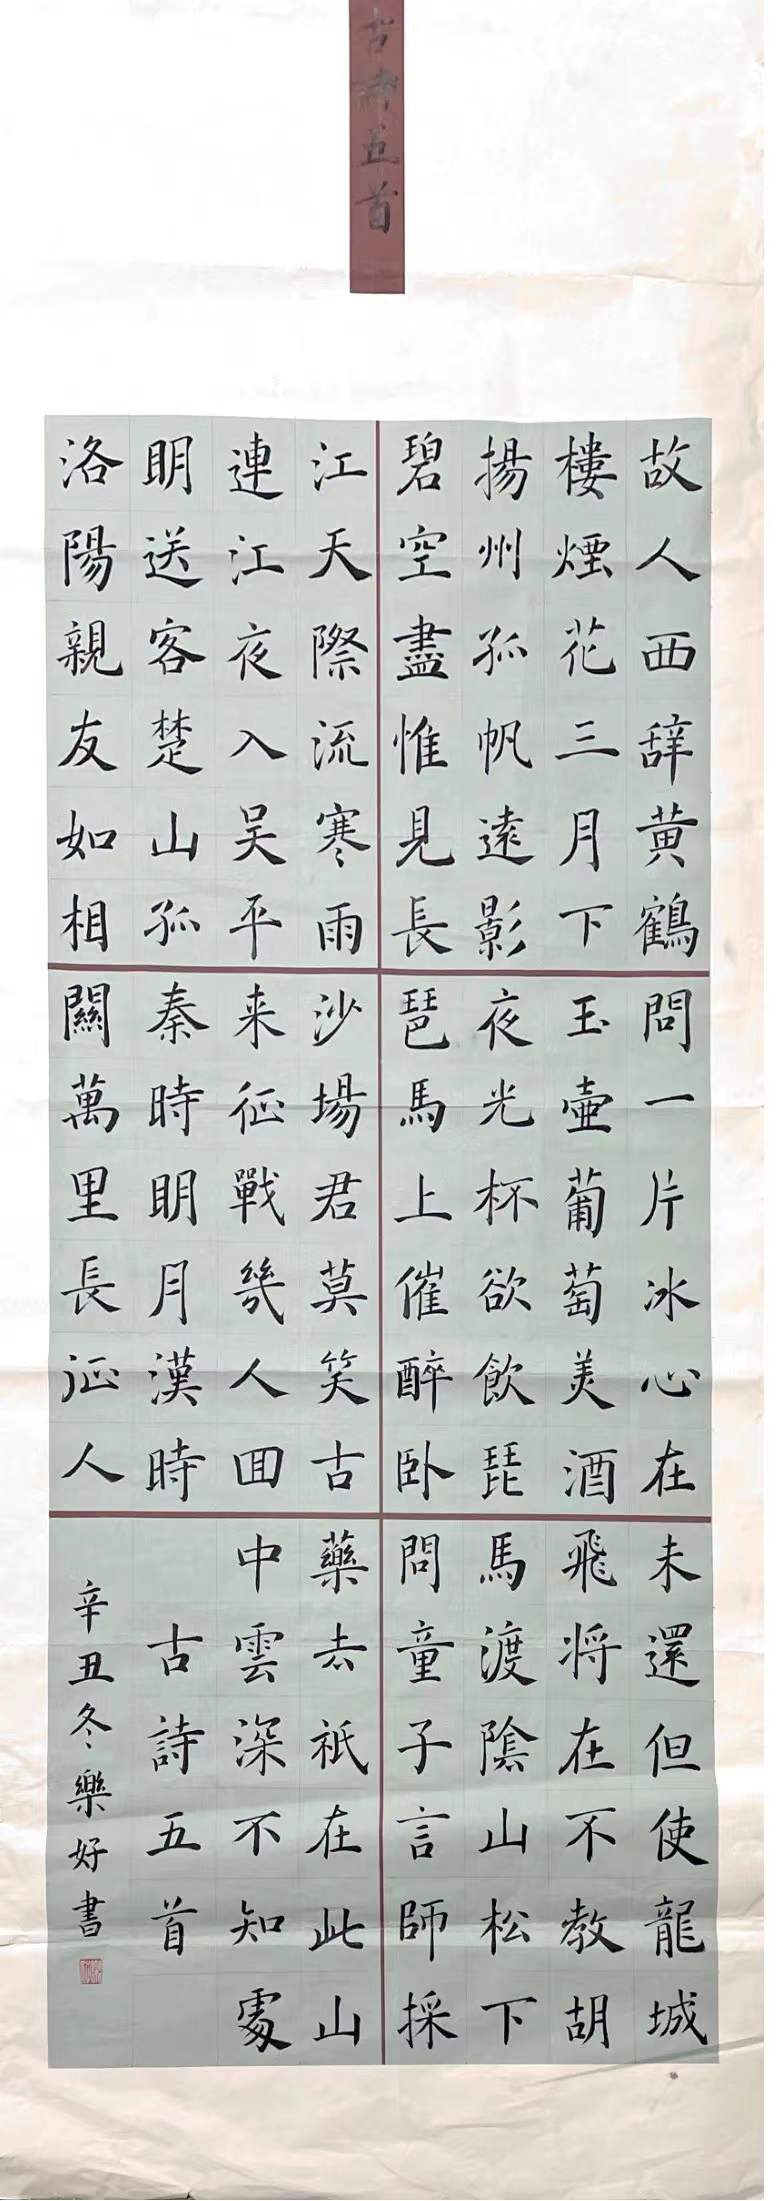 古詩五首
故人西辞黄鶴
樓煙花三月下
揚州孤帆遠影
碧空盡惟見長
江天際流寒雨
連江夜入吴平
明送客楚山孤
洛陽親友如相
問一片冰心在
玉壺葡萄美酒
夜光杯欲飲琵
琶馬上催醉卧
沙場君莫笑古
来征戰幾人回
秦時明月漢時
關萬里長征人
未還但使龍城
飛将在不教胡
馬渡陰山松下
問童子言師採
藥去祇在此山
中雲深不知處
古詩五首
辛丑冬樂好書